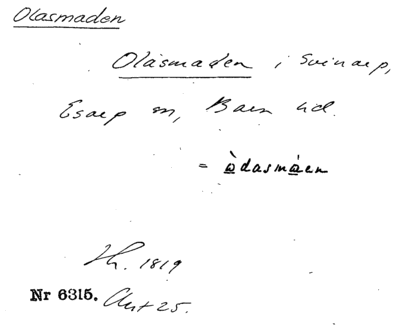 Olasmaden
Olasmaden i Svinarp,
Esarp sn, Bara hd.
= òdasmáen
Lh. 1819
Nr 6315. Akt 25.